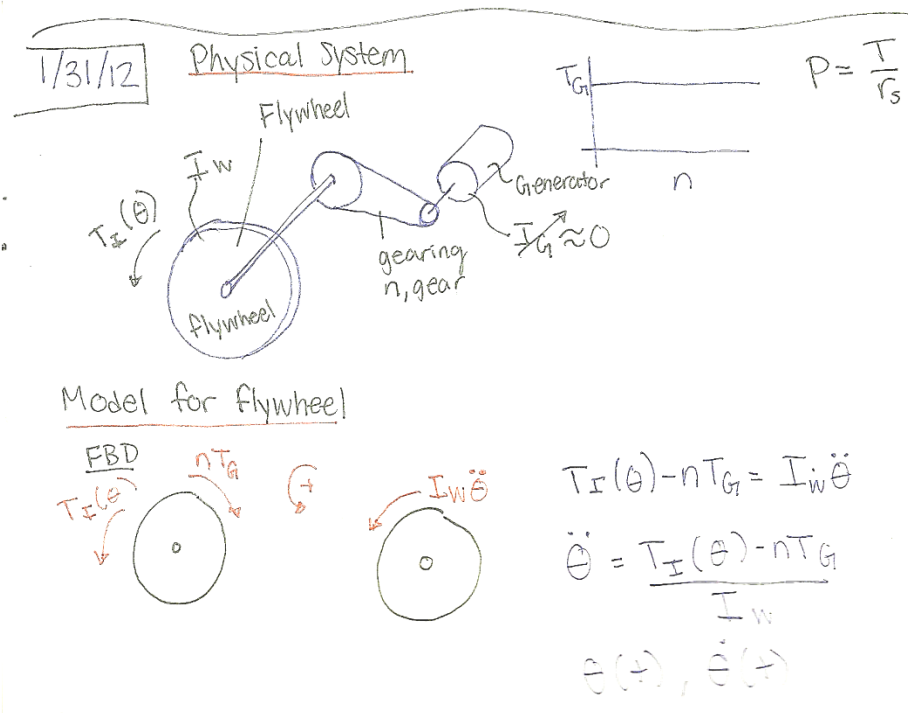 1/31/12
Physical System
Flywheel
I_W
T_I(θ)
flywheel
gearing
n, gear
Generator
I_G ≈ 0
T_G
n
P = T/r_s
Model for flywheel
FBD
T_I(θ)
nT_G
+
I_W θ̈
T_I(θ) - nT_G = I_W θ̈
θ̈ = T_I(θ) - nT_G
I_W
θ(t), θ̇(t)